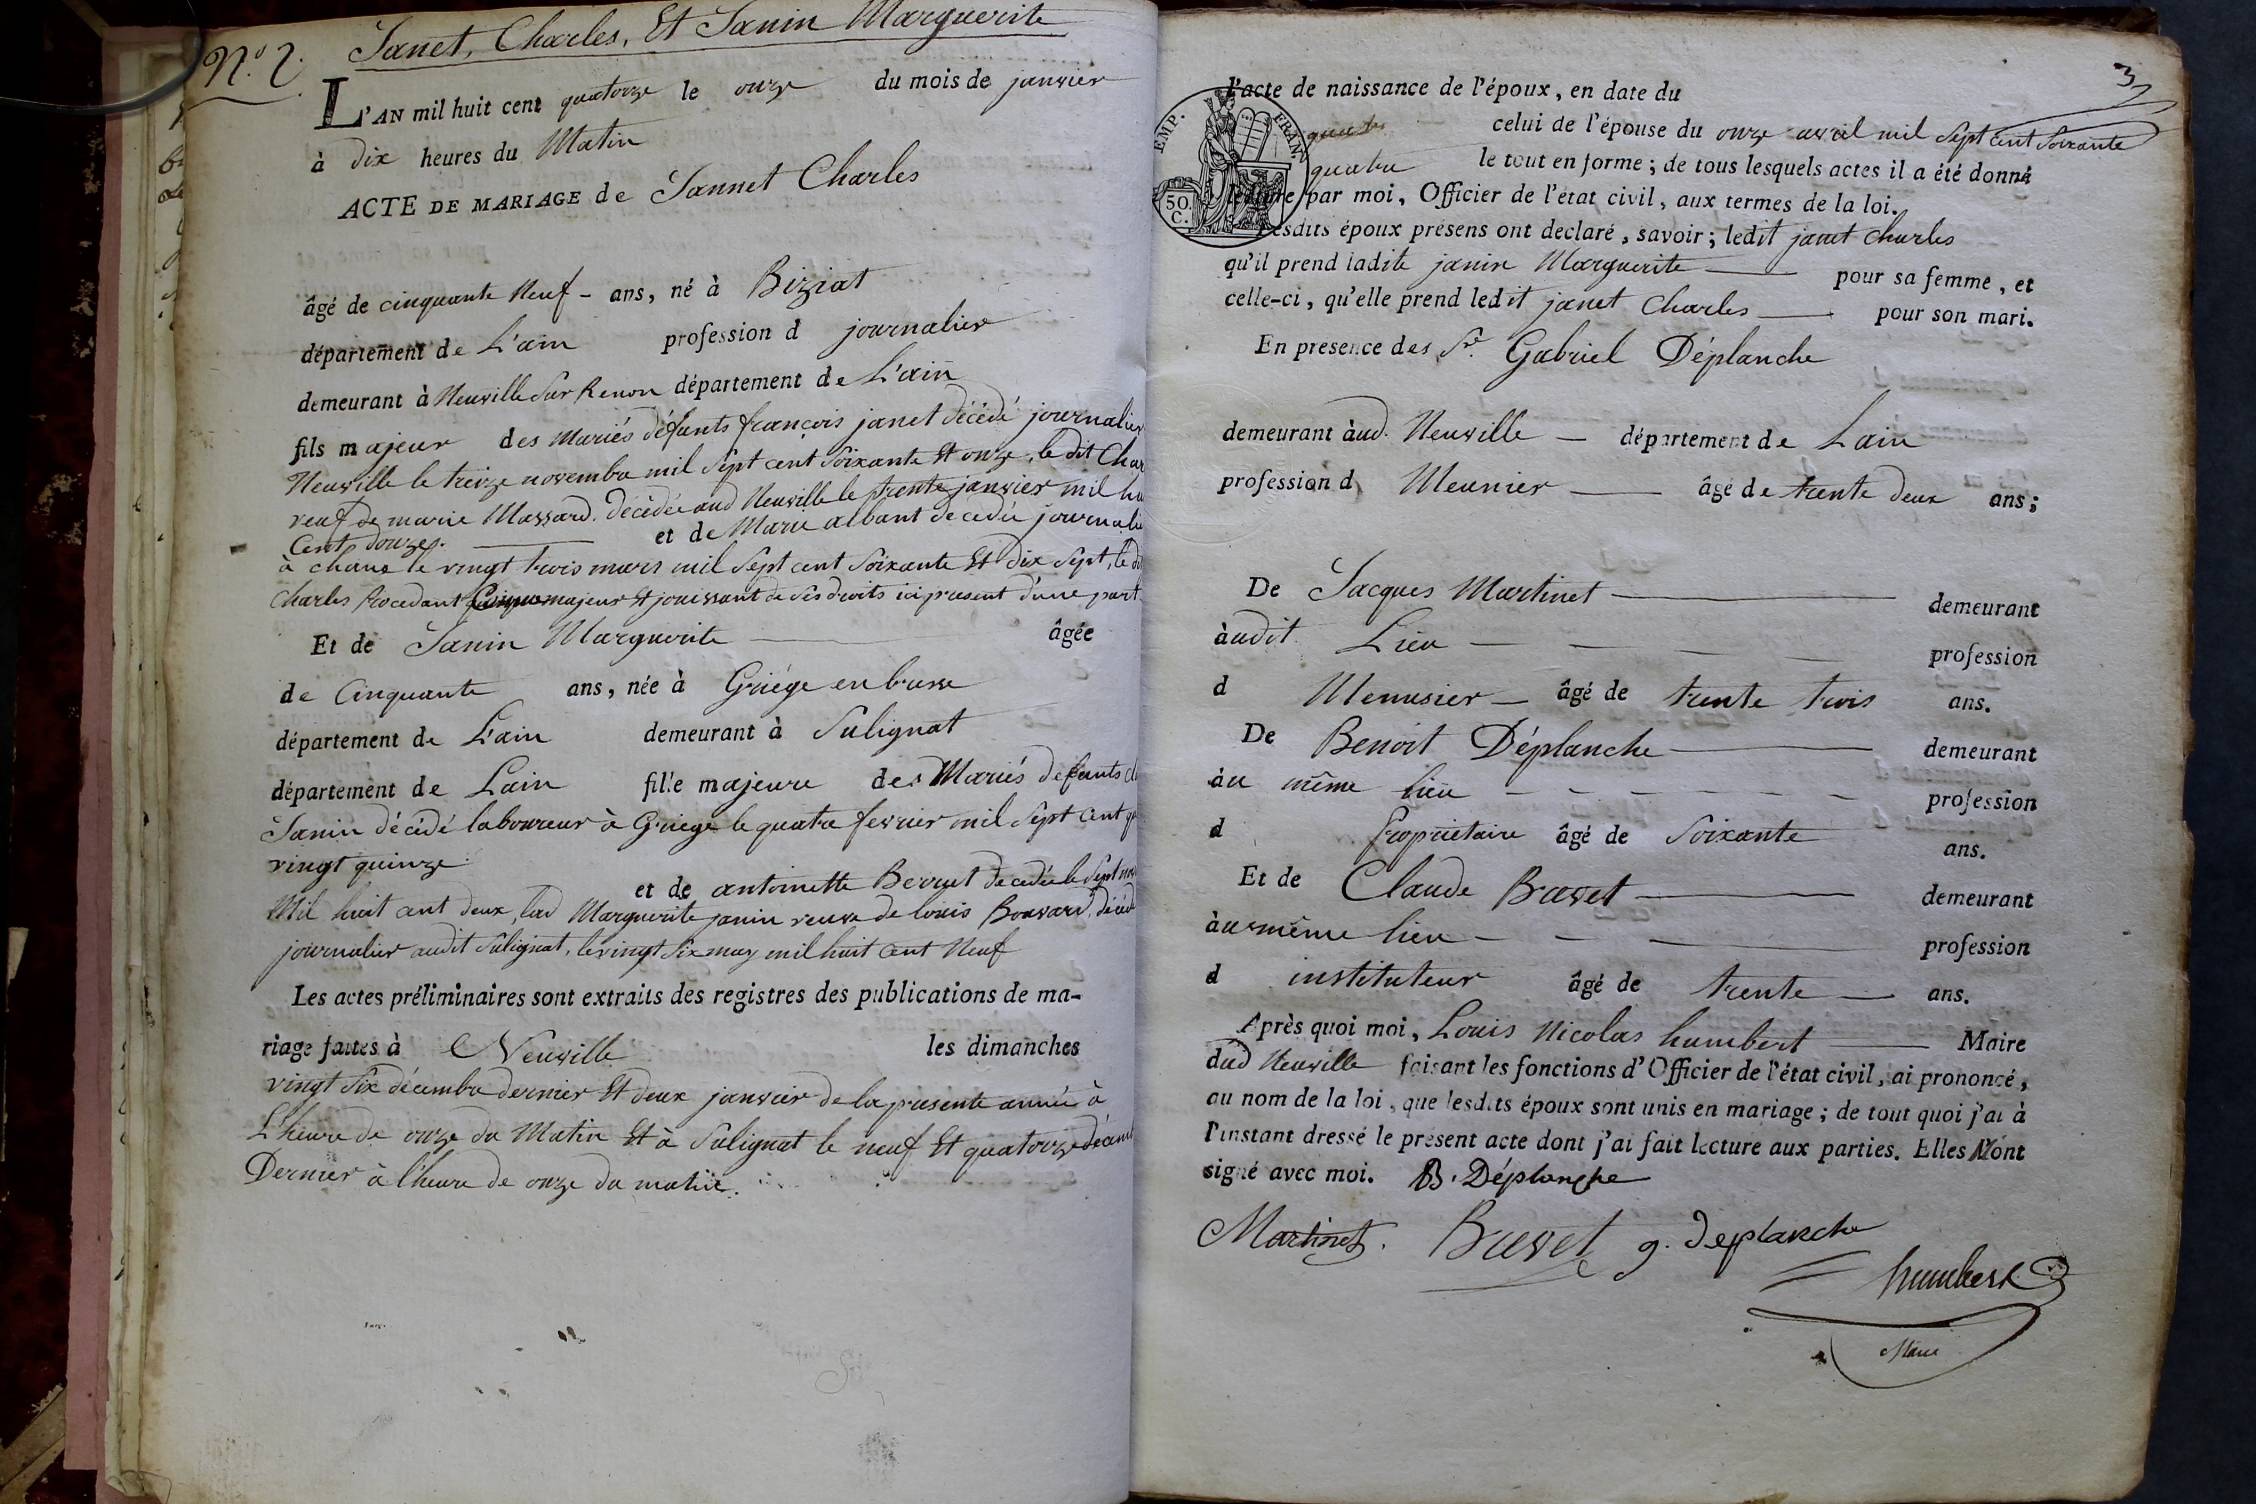 N.o 2. Janet, Charles, Et Janin Marguerite
L'AN mil huit cent quatorze le onze du mois de janvier
à dix heures du Matin
ACTE DE MARIAGE de Jannet Charles
âgé de cinquante Neuf - ans, né à Biziat
département de L'ain profession d journalier
demeurant à Neuville Sur Renon département de L'ain
fils majeur des Mariés défunts françois janet décédé journalier
Neuville le treize novembre mil Sept cent Soixante Et onze, le dit Char
veuf de marie Massard. décédée aud Neuville le trente janvier mil hu
Cent douze. et de Marie albant decedée journali
à chane le vingt trois mars mil Sept cent Soixante Et dix Sept, le d
Charles Procedant majeur Et jouissant de Ses droits ici present d'une part
Et de Janin Marguerite âgée
de Cinquante ans, née à Griége en bresse
département de L'ain demeurant à Sulignat
département de Lain fille majeure des Mariés defunts
Janin décédé laboureur à Griege le quatre fevrier mil Sept Cent q
vingt quinze
et de antoinette Berruet decedée le Sept
Mil huit cent deux, lad Marguerite janin veuve de louis Bouvard, décéd
journalier audit Sulignat, le vingt Six may mil huit cent Neuf
Les actes préliminaires sont extraits des registres des publications de ma-
riage faites à Neuville les dimanches
vingt Six décembre dernier Et deux janvier de la presente année à
L'heure de onze du Matin Et à Sulignat le neuf Et quatorze décem
Dernier à l'heure de onze du matin.
3
l'acte de naissance de l'époux, en date du
celui de l'épouse du onze avril mil Sept Cent Soixante
quatre le tout en forme; de tous lesquels actes il a été donné
lecture par moi, Officier de l'état civil, aux termes de la loi.
EMP. FRAN.
50 C.
Lesdits époux présens ont declaré, savoir; ledit janet Charles
qu'il prend ladite janin Marguerite pour sa femme, et
celle-ci, qu'elle prend ledit janet Charles pour son mari.
En presence des Sr. Gabriel Déplanche
demeurant àud. Neuville département de Lain
profession d Meunier âgé de trente deux ans;
De Jacques Martinet demeurant
àudit Lieu profession
d Menusier âgé de trente trois ans.
De Benoit Déplanche demeurant
àu même lieu profession
d Proprietaire âgé de Soixante ans.
Et de Claude Buvet demeurant
àu même lieu profession
d instituteur âgé de trente ans.
Après quoi moi, Louis Nicolas humbert Maire
dud Neuville faisant les fonctions d'Officier de l'état civil, ai prononcé,
au nom de la loi, que lesdits époux sont unis en mariage; de tout quoi j'ai à
l'instant dressé le présent acte dont j'ai fait lecture aux parties. Elles N'ont
signé avec moi. B. Déplanche
Martinet. Buvet g. deplanche
humbert
Maire